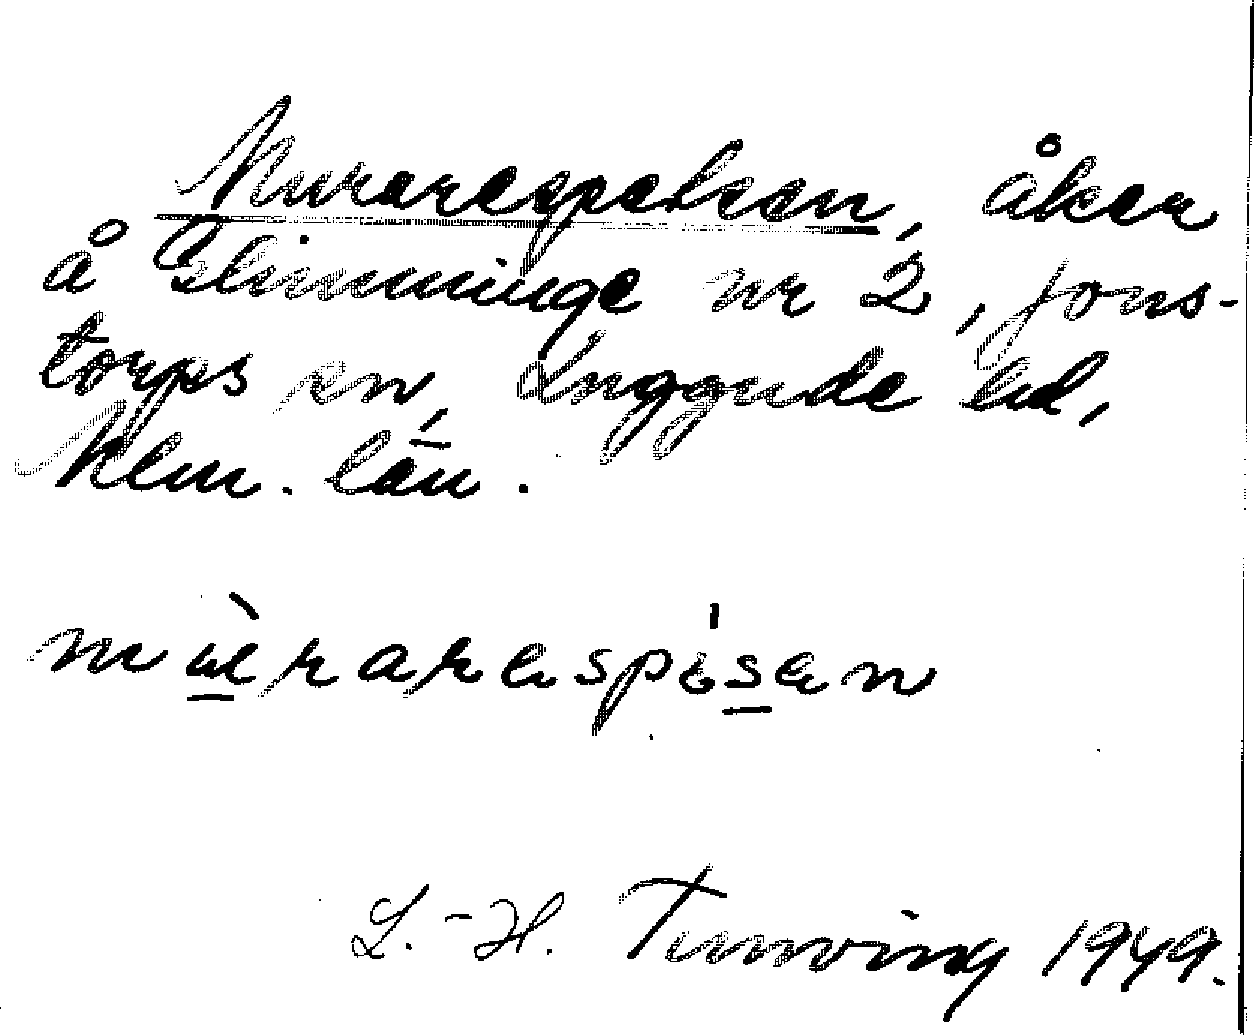 Murarespetsen, åker
å Glimminge nr 2, Jons-
torps sn, Luggude hd,
Klm. län.
mùrarespisen
L.-H. Tunving 1949.